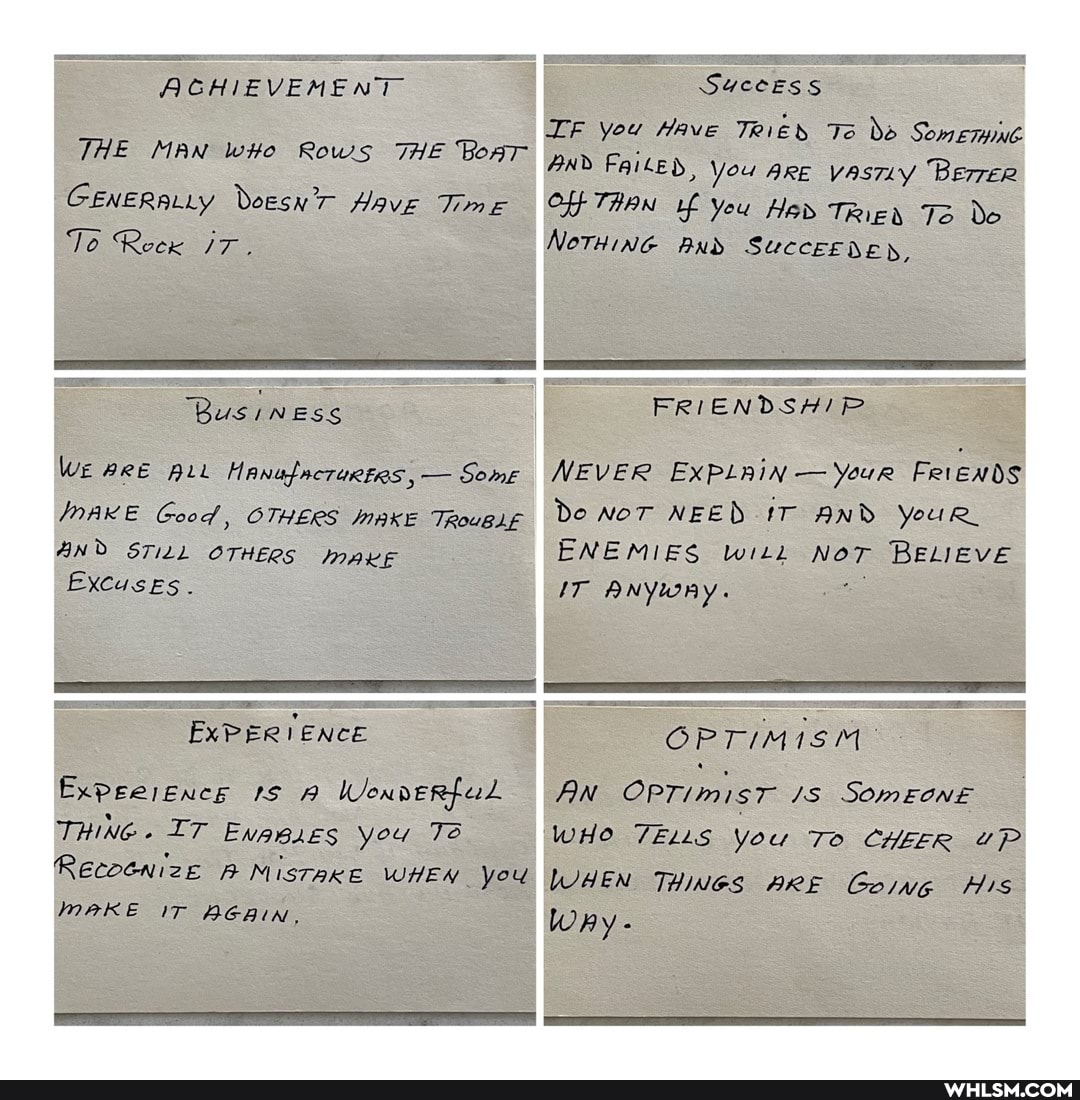 ACHIEVEMENT
THE MAN WHO ROWS THE BOAT
GENERALLY DOESN'T HAVE TIME
TO ROCK IT.
SUCCESS
IF YOU HAVE TRIED TO DO SOMETHING
AND FAILED, YOU ARE VASTLY BETTER
OFF THAN IF YOU HAD TRIED TO DO
NOTHING AND SUCCEEDED,
BUSINESS
WE ARE ALL MANUFACTURERS, — SOME
MAKE GOOD, OTHERS MAKE TROUBLE
AND STILL OTHERS MAKE
EXCUSES.
FRIENDSHIP
NEVER EXPLAIN — YOUR FRIENDS
DO NOT NEED IT AND YOUR
ENEMIES WILL NOT BELIEVE
IT ANYWAY.
EXPERIENCE
EXPERIENCE IS A WONDERFUL
THING. IT ENABLES YOU TO
RECOGNIZE A MISTAKE WHEN YOU
MAKE IT AGAIN.
OPTIMISM
AN OPTIMIST IS SOMEONE
WHO TELLS YOU TO CHEER UP
WHEN THINGS ARE GOING HIS
WAY.
WHLSM.COM